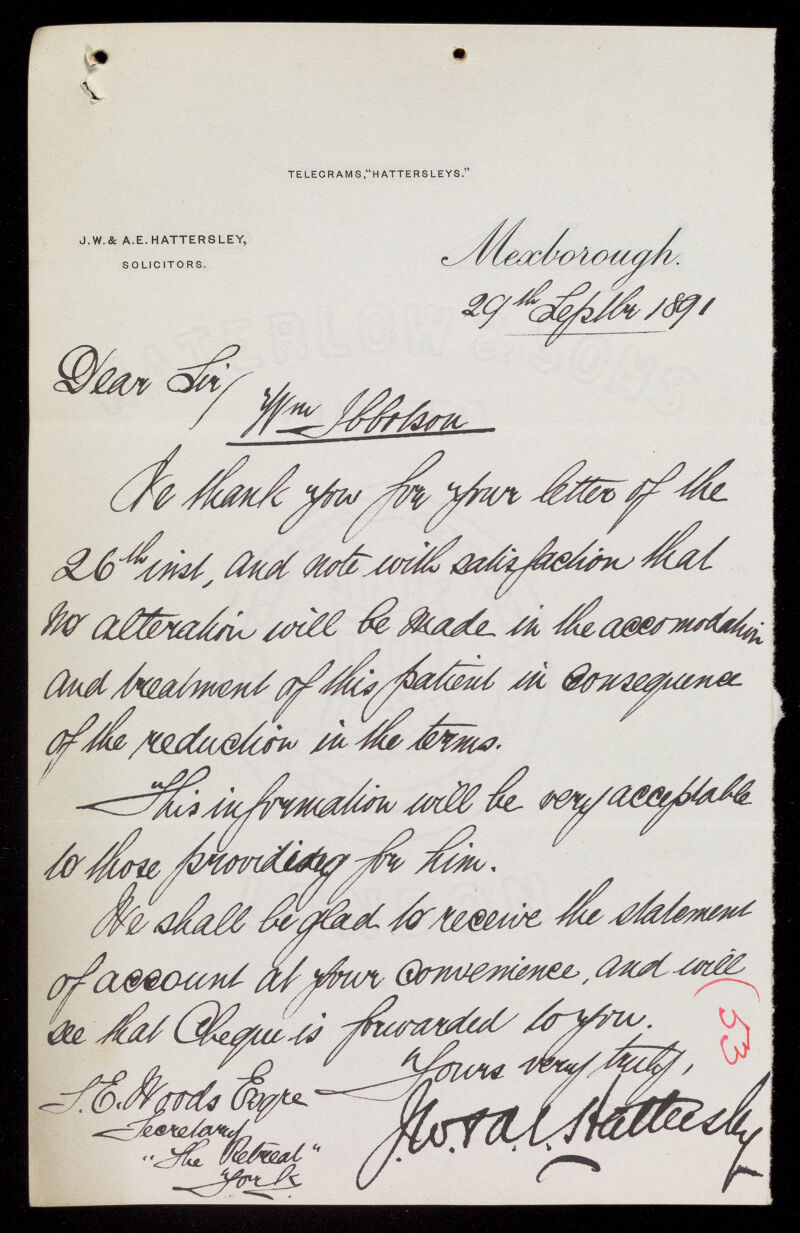 TELEGRAMS, "HATTERSLEYS."
J.W. & A.E. HATTERSLEY,
SOLICITORS.
Mexborough.
29th Septbr 1891
Dear Sir/
Wm Ibbotson
We thank you for your letter of the
26th inst, and note with satisfaction that
no alteration will be made in the accomodation
and treatment of this patient in consequence
of the reduction in the terms.
This information will be very acceptable
to those providing for him.
We shall be glad to receive the statement
of account at your convenience, and will
see that Cheque is forwarded to you.
Yours very truly,
J.W. & A.E. Hattersley
S.E. Woods Esqre
Secretary
"The Retreat"
York
53